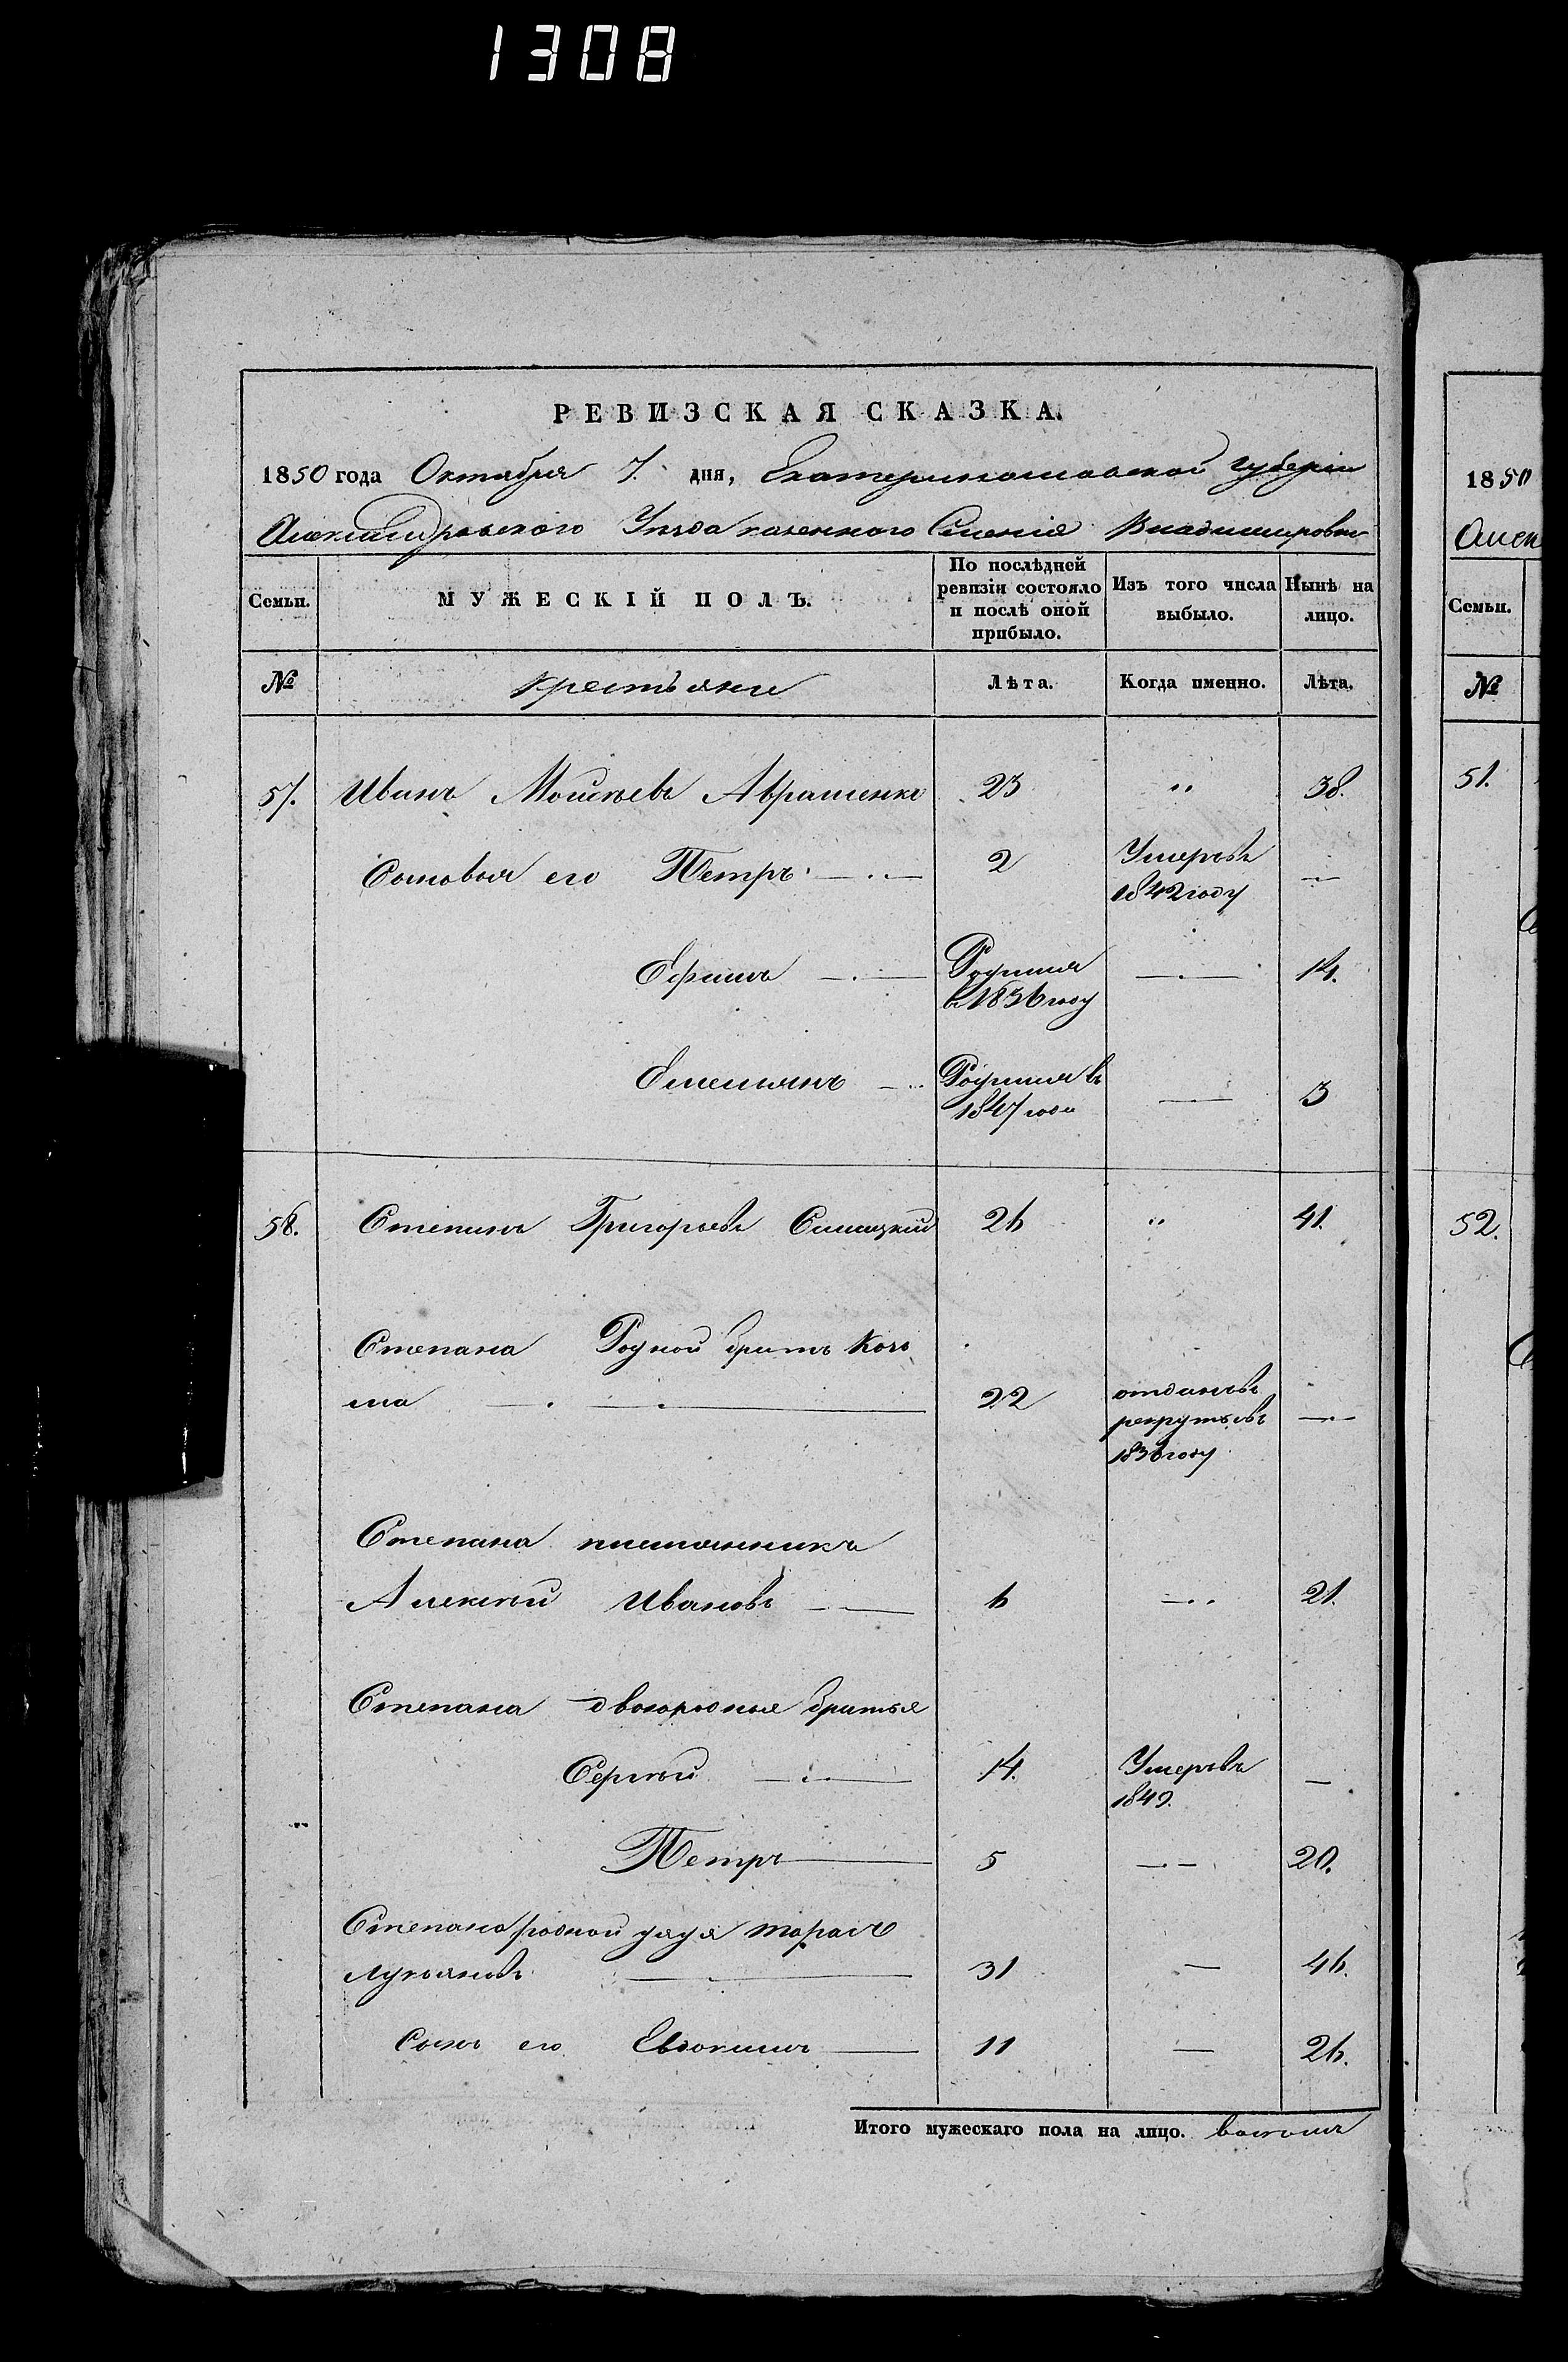 1308
РЕВИЗСКАЯ СКАЗКА.
1850 года Октября 7. дня, Екатеринославской губерніи
Александровского Уезда казенного Селенія Владимировки
Семьи.
МУЖЕСКІЙ ПОЛЪ.
По послѣдней
ревизіи состояло
и послѣ оной
прибыло.
Изъ того числа
выбыло.
Нынѣ на
лицо.
№ крестьяне Лѣта. Когда именно. Лѣта.
57. Иванъ Моисѣевъ Авраменко 23 " 38.
Сыновья его Петръ 2 Умеръ въ
1842 году
Ефимъ Родился
въ 1836 году
14.
Емельянъ Родился въ
1847 году
3
58. Степанъ Григорьевъ 26 " 41.
Степана Родной братъ Козь
ма 22 отданъ въ
рекруты въ
1836 году
Степана племянникъ
Алексѣй Ивановъ 6 21.
Степана двоюродныя братья
Сергѣй 14. Умеръ въ
1849.
Петръ 5 20.
Степана родной дядя Тарасъ
Лукьяновъ 31 46.
Сынъ его Евдокимъ 11 26.
Итого мужескаго пола на лицо. восемь
1850
Алек
Семьи.
№
51.
52.